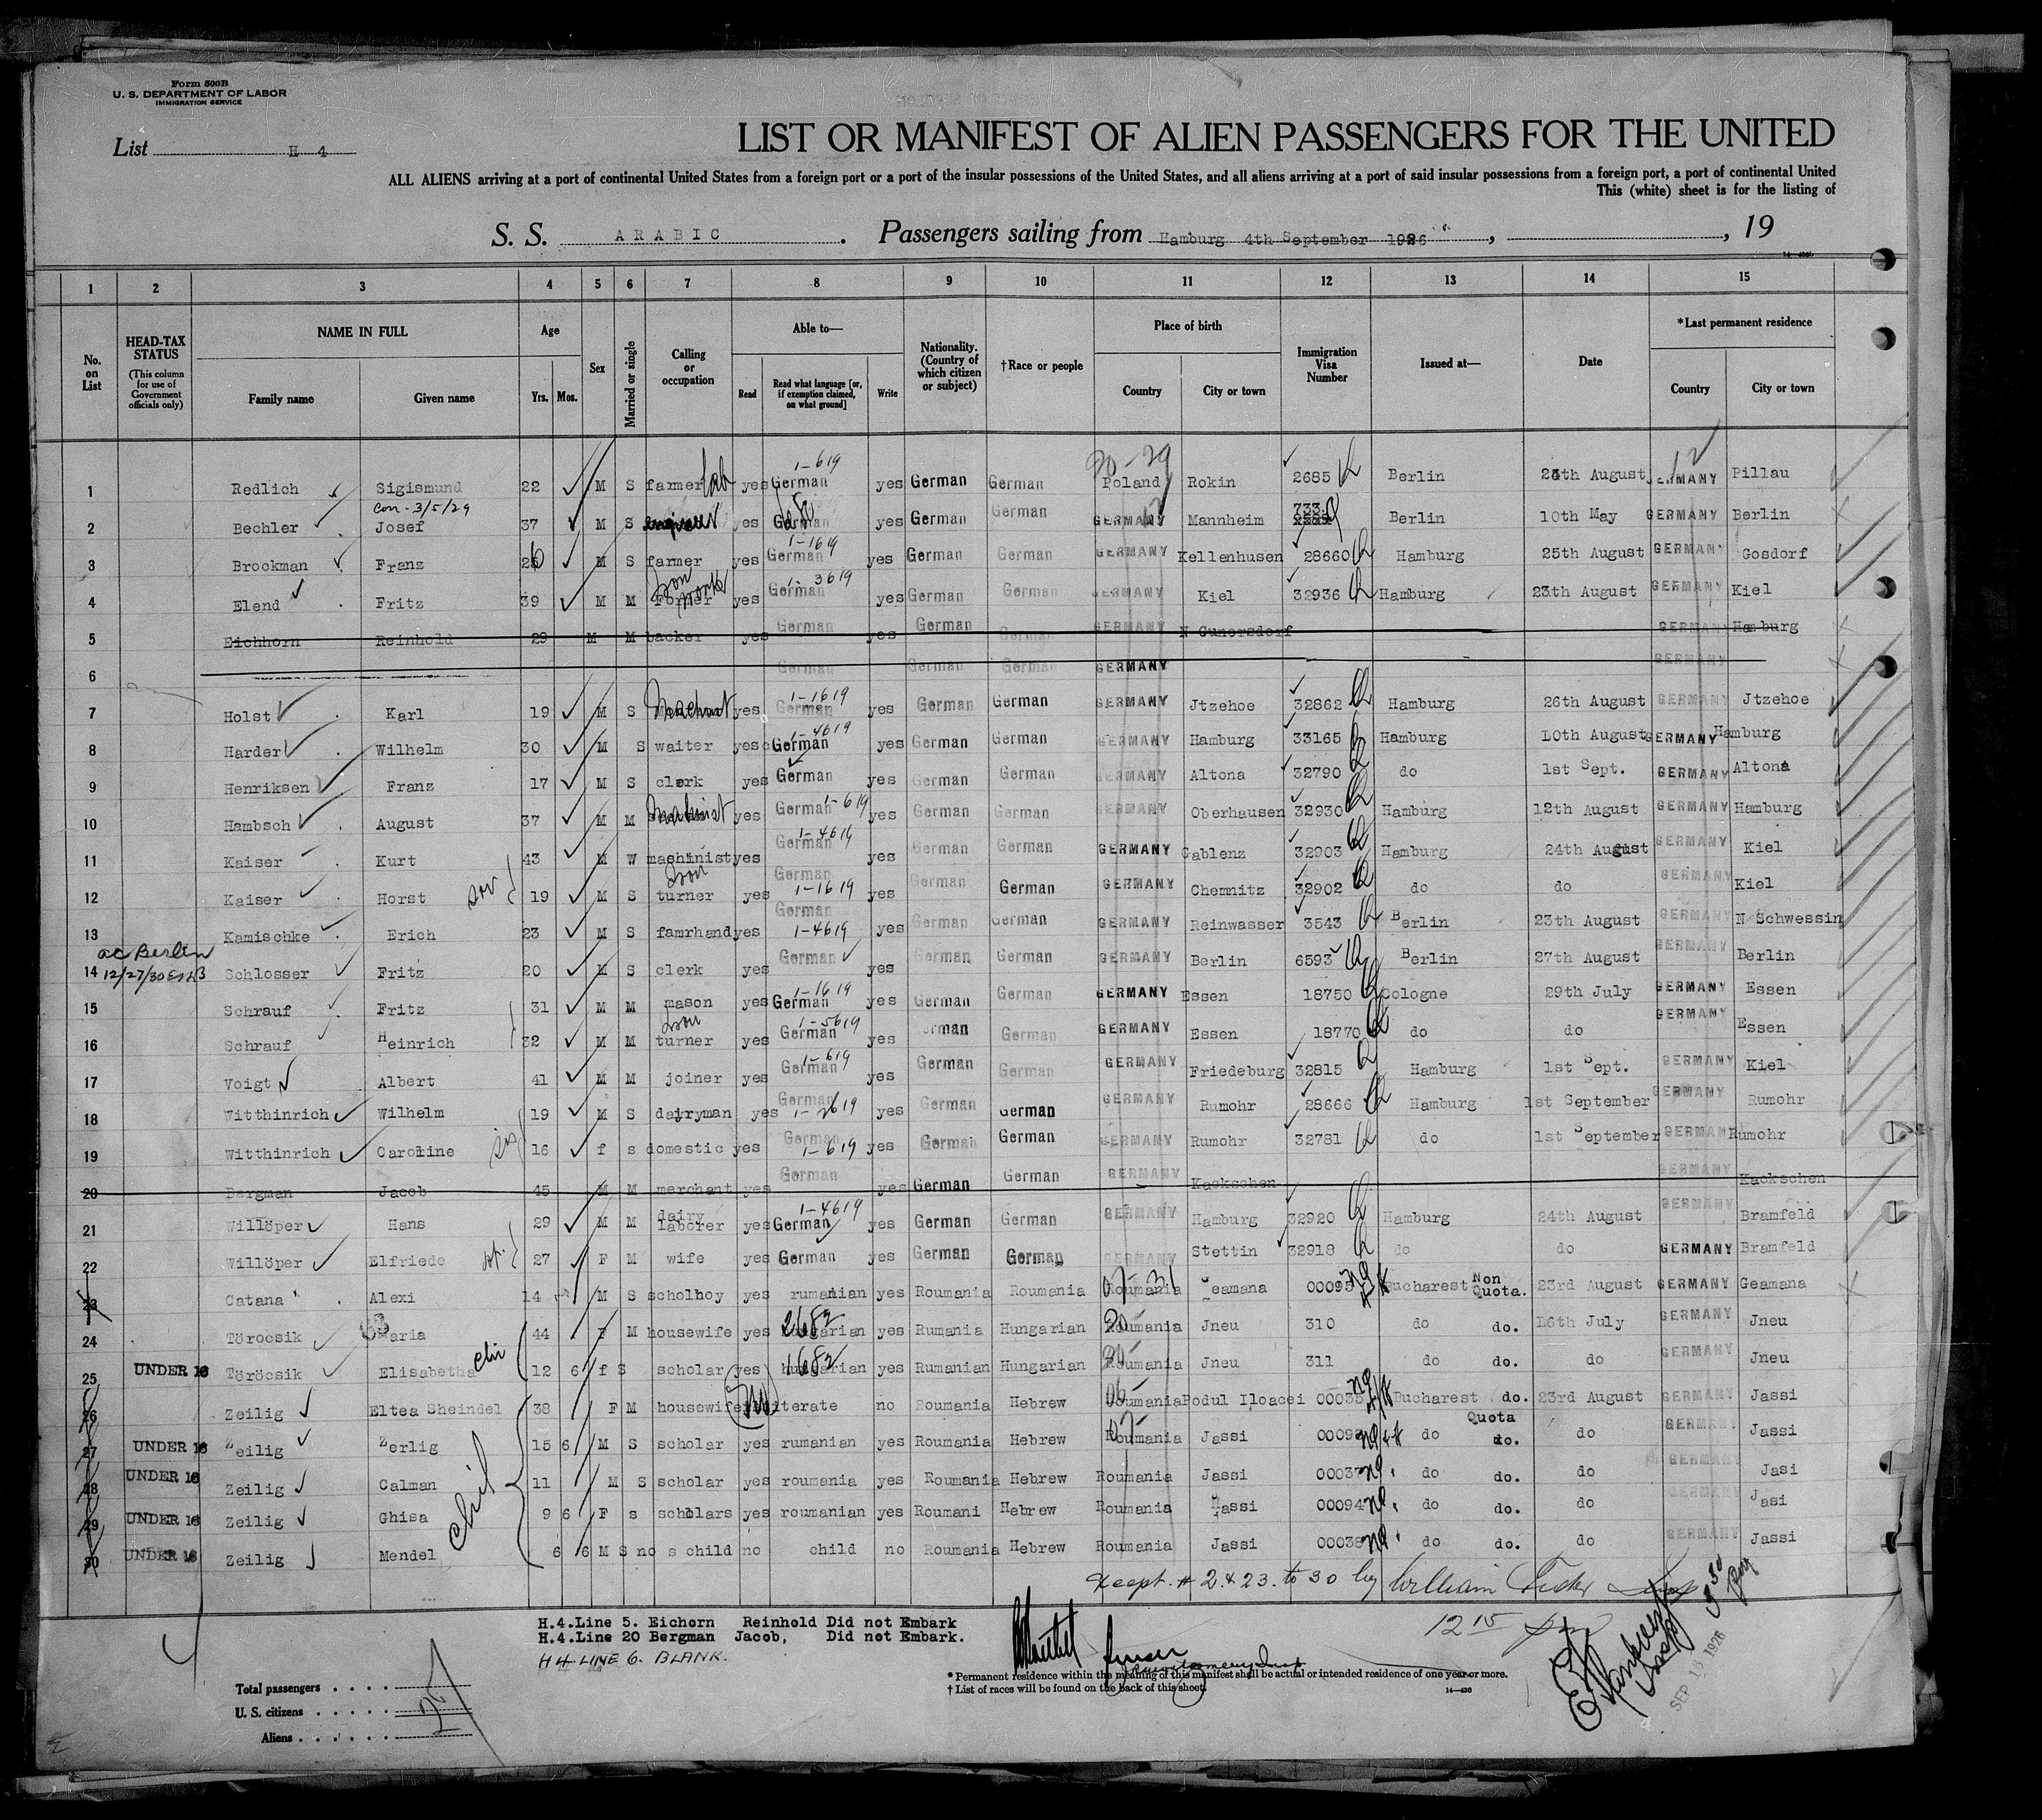 Form 500B
U. S. DEPARTMENT OF LABOR
IMMIGRATION SERVICE
List H 4
LIST OR MANIFEST OF ALIEN PASSENGERS FOR THE UNITED
ALL ALIENS arriving at a port of continental United States from a foreign port or a port of the insular possessions of the United States, and all aliens arriving at a port of said insular possessions from a foreign port, a port of continental United
This (white) sheet is for the listing of
S. S. ARABIC . Passengers sailing from Hamburg 4th September 1926 , , 19
1 2 3 4 5 6 7 8 9 10 11 12 13 14 15
No. on List
HEAD-TAX STATUS (This column for use of Government officials only)
NAME IN FULL
Family name Given name
Age
Yrs. Mos.
Sex
Married or single
Calling or occupation
Able to—
Read Read what language [or, if exemption claimed, on what ground] Write
Nationality. (Country of which citizen or subject)
†Race or people
Place of birth
Country City or town
Immigration Visa Number
Issued at—
Date
*Last permanent residence
Country City or town
1 Redlich Sigismund 22 M S farmer lab yes German 1-619 yes German German Poland 20-29 Rokin 2685 Berlin 24th August GERMANY Pillau
con-3/5/29
2 Bechler Josef 37 M S yes German yes German German GERMANY Mannheim 733 Berlin 10th May GERMANY Berlin
3 Brockman Franz 26 M S farmer yes German 1-1619 yes German German GERMANY Kellenhusen 28660 Hamburg 25th August GERMANY Gosdorf
4 Elend Fritz 39 M M Former Iron works yes German 1-3619 yes German German GERMANY Kiel 32936 Hamburg 23th August GERMANY Kiel
5 Eichhorn Reinhold 29 M M backer yes German yes German German GERMANY N Gunersdorf GERMANY Hamburg
6 German German German GERMANY GERMANY
7 Holst Karl 19 M S yes German 1-1619 yes German German GERMANY Jtzehoe 32862 Hamburg 26th August GERMANY Jtzehoe
8 Harder Wilhelm 30 M S waiter yes German 1-4619 yes German German GERMANY Hamburg 33165 Hamburg 10th August GERMANY Hamburg
9 Henriksen Franz 17 M S clerk yes German yes German German GERMANY Altona 32790 do 1st Sept. GERMANY Altona
10 Hambsch August 37 M M Machinist yes German 1-619 yes German German GERMANY Oberhausen 32930 Hamburg 12th August GERMANY Hamburg
11 Kaiser Kurt 43 M W machinist yes German 1-4619 yes German German GERMANY Gablenz 32903 Hamburg 24th August GERMANY Kiel
12 Kaiser Horst son 19 M S Iron turner yes German 1-1619 yes German German GERMANY Chemnitz 32902 do do GERMANY Kiel
13 Kamischke Erich 23 M S famrhand yes German 1-4619 yes German German GERMANY Reinwasser 3543 Berlin 23th August GERMANY N Schwessin
ac Berlin
14 12/27/30 Schlosser Fritz 20 M S clerk yes German yes German German GERMANY Berlin 6593 Berlin 27th August GERMANY Berlin
15 Schrauf Fritz 31 M M mason yes German 1-1619 yes German German GERMANY Essen 18750 Cologne 29th July GERMANY Essen
16 Schrauf Heinrich 32 M M Iron turner yes German 1-5619 yes German German GERMANY Essen 18770 do do GERMANY Essen
17 Voigt Albert 41 M M joiner yes German 1-619 yes German German GERMANY Friedeburg 32815 Hamburg 1st Sept. GERMANY Kiel
18 Witthinrich Wilhelm 19 M S dairyman yes German 1-2619 yes German German GERMANY Rumohr 28666 Hamburg 1st September GERMANY Rumohr
19 Witthinrich Caroline sis 16 f s domestic yes German 1-619 yes German German GERMANY Rumohr 32781 do 1st September GERMANY Rumohr
20 Bergman Jacob 45 M M merchant yes German yes German German GERMANY Kackschen GERMANY Kackschen
21 Willöper Hans 29 M M dairy laborer yes German 1-4619 yes German German GERMANY Hamburg 32920 Hamburg 24th August GERMANY Bramfeld
22 Willöper Elfriede 27 F M wife yes German yes German German GERMANY Stettin 32918 do do GERMANY Bramfeld
23 Catana Alexi 14 M S scholboy yes rumanian yes Roumania Roumania Roumania Geamana 00095 Bucharest Non Quota. 23rd August GERMANY Geamana
24 Törocsik Maria 44 F M housewife yes hungarian 2682 yes Rumania Hungarian Roumania Jneu 310 do do. 16th July GERMANY Jneu
25 UNDER 16 Töröcsik Elisabetha 12 6 f S scholar yes hungarian 1682 yes Rumanian Hungarian Roumania Jneu 311 do do. do GERMANY Jneu
26 Zeilig Eltea Sheindel 38 F M housewife no illiterate no Roumania Hebrew Roumania Podul Iloacei 00035 Bucharest do. 23rd August GERMANY Jassi
27 UNDER 16 Zeilig Zerlig 15 6 M S scholar yes rumanian yes Roumania Hebrew Roumania Jassi do Quota do. do GERMANY Jassi
28 UNDER 16 Zeilig Calman 11 M S scholar yes roumania yes Roumania Hebrew Roumania Jassi 00037 do do. do GERMANY Jasi
29 UNDER 16 Zeilig Ghisa 9 6 F s scholars yes roumanian yes Roumani Hebrew Roumania Jassi 00094 do do. do GERMANY Jasi
30 UNDER 16 Zeilig Mendel 6 6 M S no s child no child no Roumania Hebrew Roumania Jassi 00038 do do. do GERMANY Jassi
chil
Except. # 2 & 23. to 30 by William
12 15 pm
H.4.Line 5. Eichorn Reinhold Did not Embark
H.4.Line 20 Bergman Jacob, Did not Embark.
H4 LINE 6. BLANK.
* Permanent residence within the meaning of this manifest shall be actual or intended residence of one year or more.
† List of races will be found on the back of this sheet.
14—430
SEP 16 1926
Total passengers . . . .
U. S. citizens . . . . .
Aliens . . . . . .
27